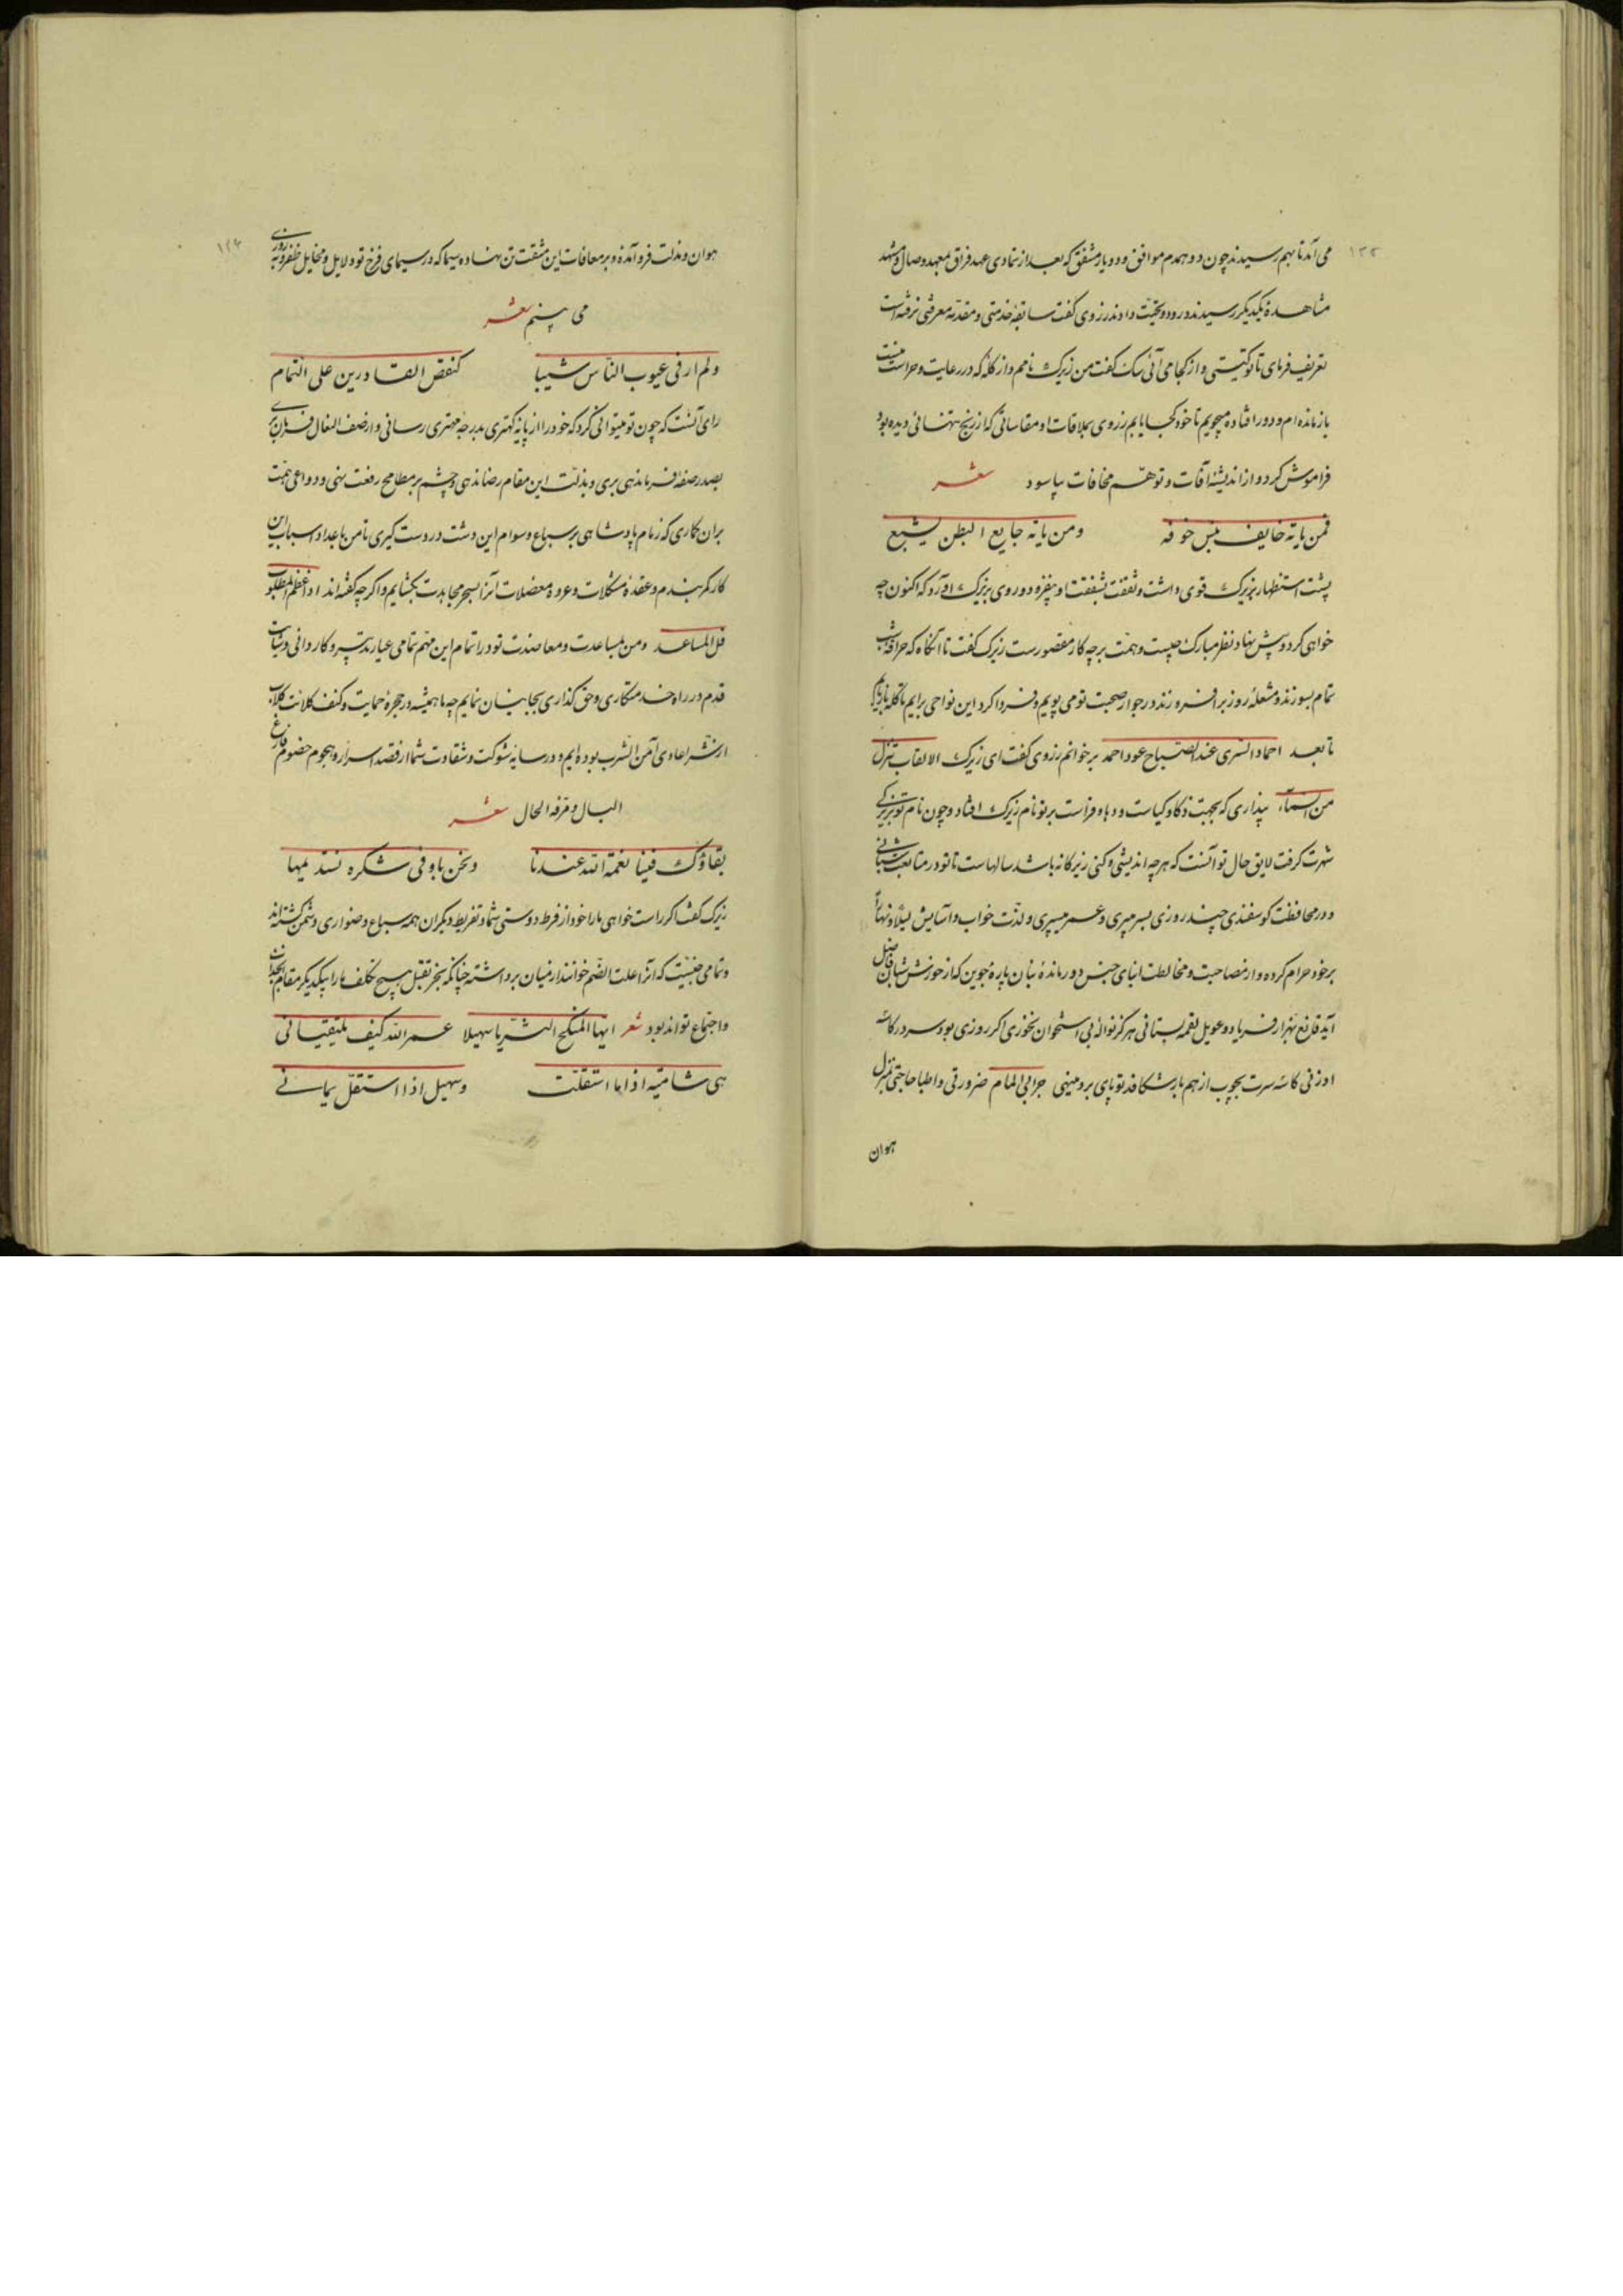 ۱۲۳
می‌آمد تا بهم رسیدند چون دو همدم موافق و دو یار مشفق که بعد از تمادی عهد فراق بمعهد وصال و مشهد
مشاهدهٔ یکدیگر رسیدند درود و تحیت دادند زروی گفت سابقهٔ خدمتی و مقدمهٔ معرفتی نرفته است
تعریف فرمای تا تو کیستی و از کجا می آئی سگ گفت من زیرک نامم و از گله که در رعایت و حراست منست
باز مانده‌ام و دور افتاده میجویم تا خود کجا یابم زروی بملاقات او مقاساتی که از رنج تنهائی دیده بود
فراموش کرد و از اندیشهٔ آفات و توهم مخافات بیاسود شعر
فمن یاته خایف ینس خوفه ومن یاته جایع البطن یشبع
پشت استظهار بزیرک قوی داشت و ثقت بشفقت او بیفزود و روی بزیرک آورد که اکنون چه
خواهی کرد و پیش نهاد نظر مبارک چیست و همت بر چه کار مقصورست زیرک گفت تا آنگاه که حراقهٔ شب
تمام بسوزند و مشعلهٔ روز برافروزند در جوار صحبت تو می پویم و فردا گرد این نواحی برایم تا گله باز یابم
تا بعد احماد السری عند الصباح عود احمد برخوانم زروی گفت ای زیرک الالقاب تنزل
من السمآء پنداری که بجهت ذکا و کیاست و دها و فراست بر تو نام زیرک افتاد و چون نام تو بزیرکی
شهرت گرفت لایق حال تو آنست که هر چه اندیشی و کنی زیرکانه باشد سالهاست تا تو در متابعت شبانی
و در محافظت گوسفندی چند روزی بسر میبری و عمر میسپری و لذت خواب و آسایش لیلاً و نهاراً
بر خود حرام کرده و از مصاحبت و مخالطت ابنای جنس دور ماندهٔ بنان پارهٔ جوین که از خورش شبان فاضل
آید قانع بهزار فریاد و عویل لقمه بستانی هرگز نوالهٔ بی استخوان نخوری اگر روزی بوسه در کاسهٔ
او زنی کاسهٔ سرت بچوب از هم باز شکافد تو پای برد مینهی جرابی المام ضرورتی و اطبا حاجتی بمنزل
هوان
۱۲۴
هوان و مذلت فرو آمده و بر معافات این مشقت تن نهاده سیما که در سیمای فرخ تو دلایل و مخایل ظفر و بهروزی
می بینم شعر
ولم ار فی عیوب الناس شیبا کنقص القادرین علی التمام
رای آنست که چون تو میتوانی کرد که خود را از پایهٔ کهتری بدرجهٔ مهتری رسانی و از صف النعال فرمان بری
بصدر صفهٔ فرماندهی بری و بذلت این مقام رضا ندهی و چشم بر مطامح رفعت نهی و دواعی همت
بران گماری که زمام پادشاهی بر سباع و سوام این دشت در دست گیری تا من باعداد اسباب این
کار کمر بندم و عقدهٔ مشکلات و عروهٔ معضلات آنرا بسحر مجاهدت بگشایم و اگر چه گفته‌اند اذا عظم المطلوب
قل المساعد ومن بمساعدت و معاضدت تو در اتمام این مهم تمامی عیار تدبیر و کاردانی و ثبات
قدم در راه خدمتکاری و حق گذاری بجا بنمایم چه ما همیشه در حجرهٔ حمایت و کنف کلائت کلاب
از شر اعادی آمن السرب بوده‌ایم و در سایهٔ شوکت و شقاوت شما از قصد اسرار و هجوم خصوم فارغ
البال و مرفه الحال شعر
بقاؤک فینا نعمة الله عندنا ونحن باوفی شکره نستدیمها
زیرک گفت اگر راست خواهی ما را خود از فرط دوستی شما و تفریط دیگران همه سباع و ضواری دشمن گشته‌اند
و تمامی جنسیت که آنرا علت الضم خوانند از میان برداشته چنانکه بجز بتقبل هیچ تکلف ما را بیکدیگر مقام اتحاد
و اجتماع تواند بود شعر ایها المنکح الثریا سهیلا عمر الله کیف یلتقیانی
هی شامیه اذا ما استقلت وسهیل اذا استقل یمانی